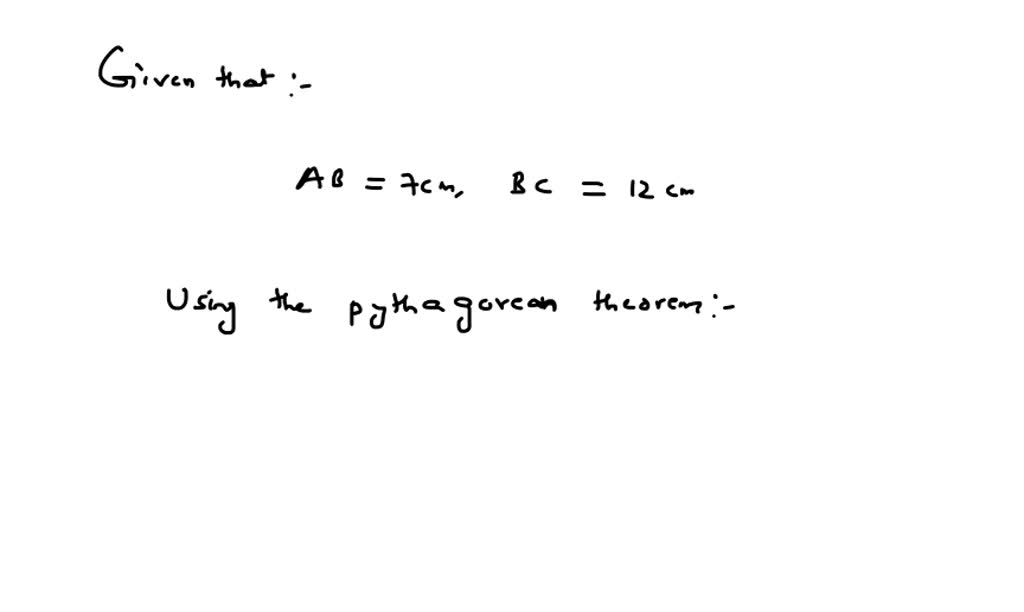 Given that :-
AB = 7cm, BC = 12 cm
Using the pythagorean theorem :-